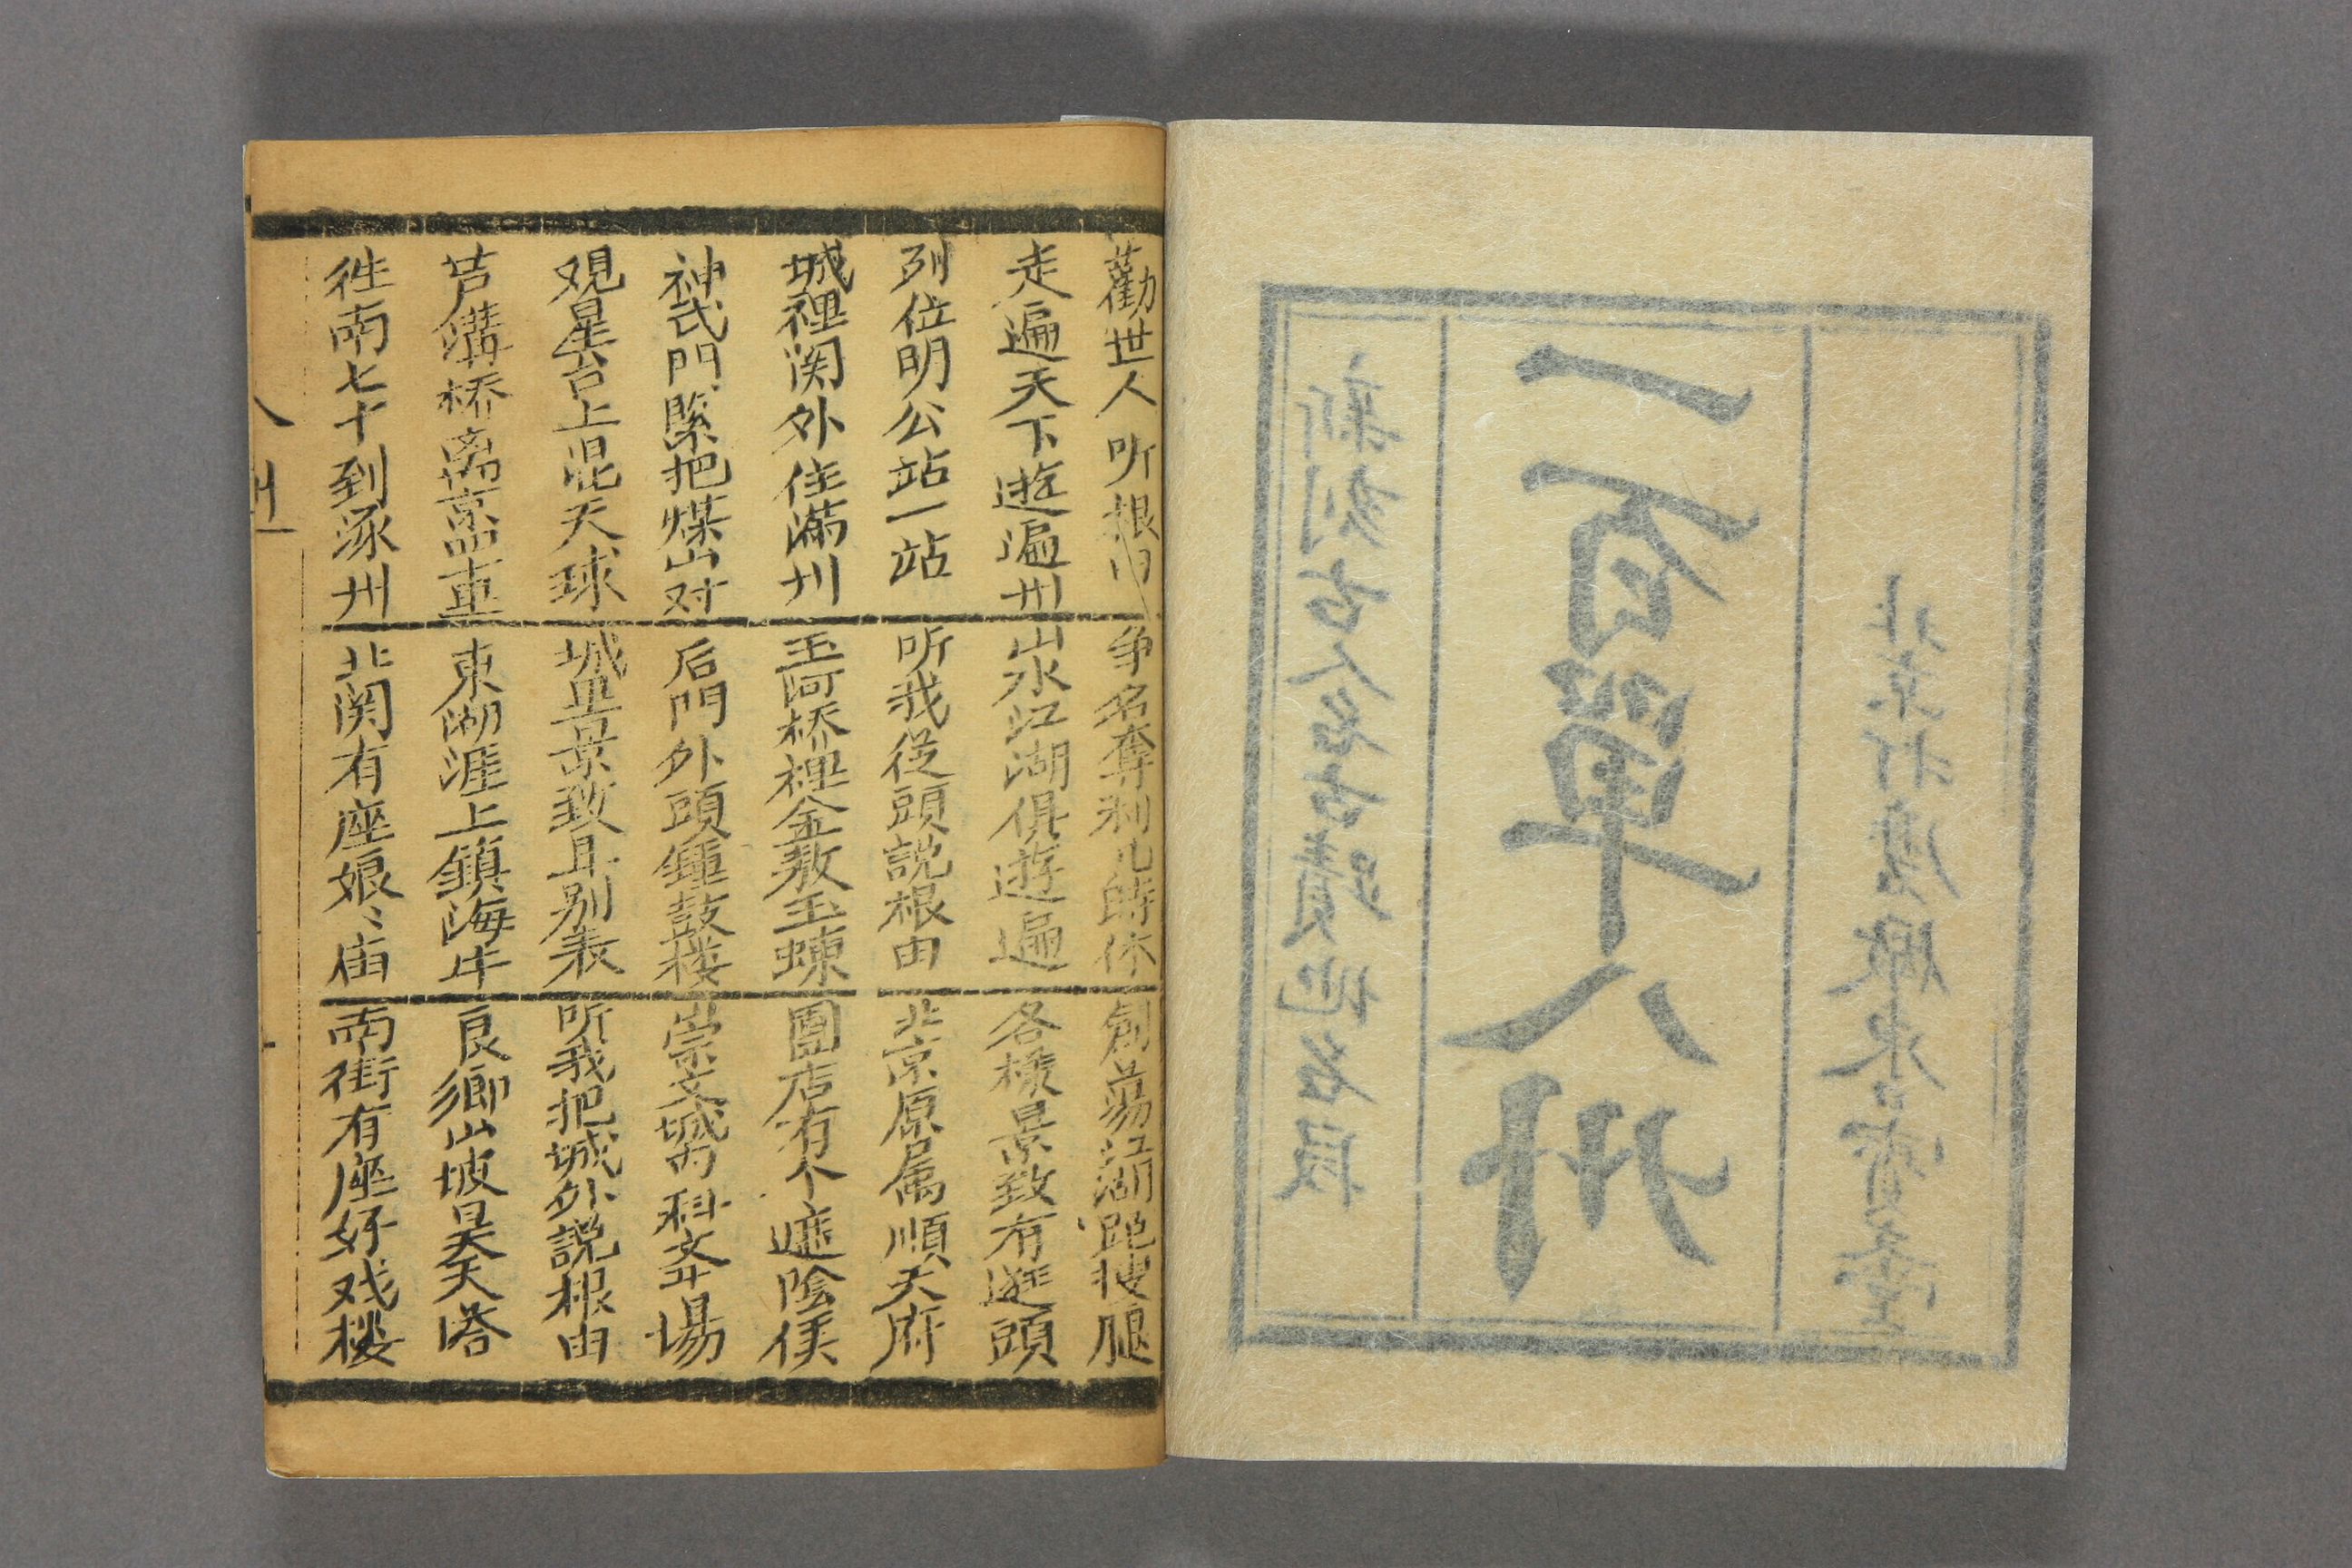 新刻古人名古蹟地名段
一百單八州
北京打磨廠東口寳文堂
勸世人听根由
争名奪利几時休
創蕩江湖跑搜腿
走遍天下遊遍州
山水江湖俱遊遍
各樣景致有逛頭
列位明公站一站
听我從頭説根由
北京原属順天府
城裡関外住滿州
玉河桥裡金敖玉蝀
團店有个遮陰侯
神武門緊把煤山对
后門外頭鐘鼓楼
崇文城内科文場
观星台上混天球
城里景致且別表
听我把城外説根由
芦溝桥离京
東湖涯上鎮海牛
良鄉山坡昊天塔
徃南七十到涿州
北関有座娘〻庙
南街有座好戏楼
八州
一